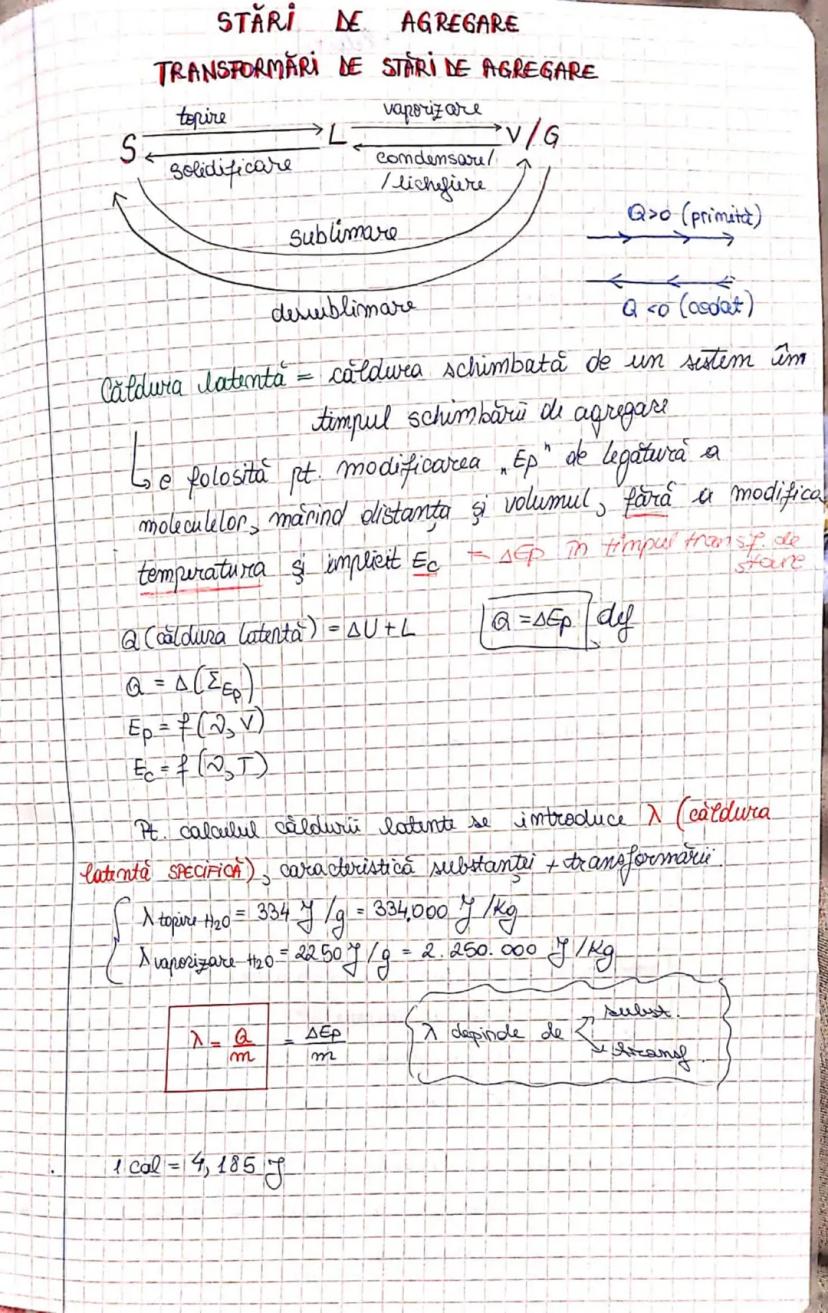 STĂRI DE AGREGARE
TRANSFORMĂRI DE STĂRI DE AGREGARE
topire vaporizare
S L V/G
solidificare condensare/
/lichefiere
sublimare
desublimare
Q>0 (primită)
Q<0 (cedat)
Căldura latentă = căldura schimbată de un sistem în
timpul schimbării de agregare
e folosită pt. modificarea „Ep" de legătură a
moleculelor, mărind distanța și volumul, fără a modifica
temperatura și implicit Ec → ΔEp în timpul transf. de
stare
Q (căldura latentă) = ΔU + L Q = ΔEp def
Q = Δ(ΣEp)
Ep = f(ν, V)
Ec = f(ν, T)
Pt. calculul căldurii latente se introduce λ (căldura
latentă SPECIFICĂ), caracteristică substanței + transformării.
λ topire H2O = 334 J/g = 334,000 J/Kg
λ vaporizare H2O = 2250 J/g = 2.250.000 J/Kg
λ = Q/m = ΔEp/m
λ depinde de subst.
transf.
1 cal = 4,185 J